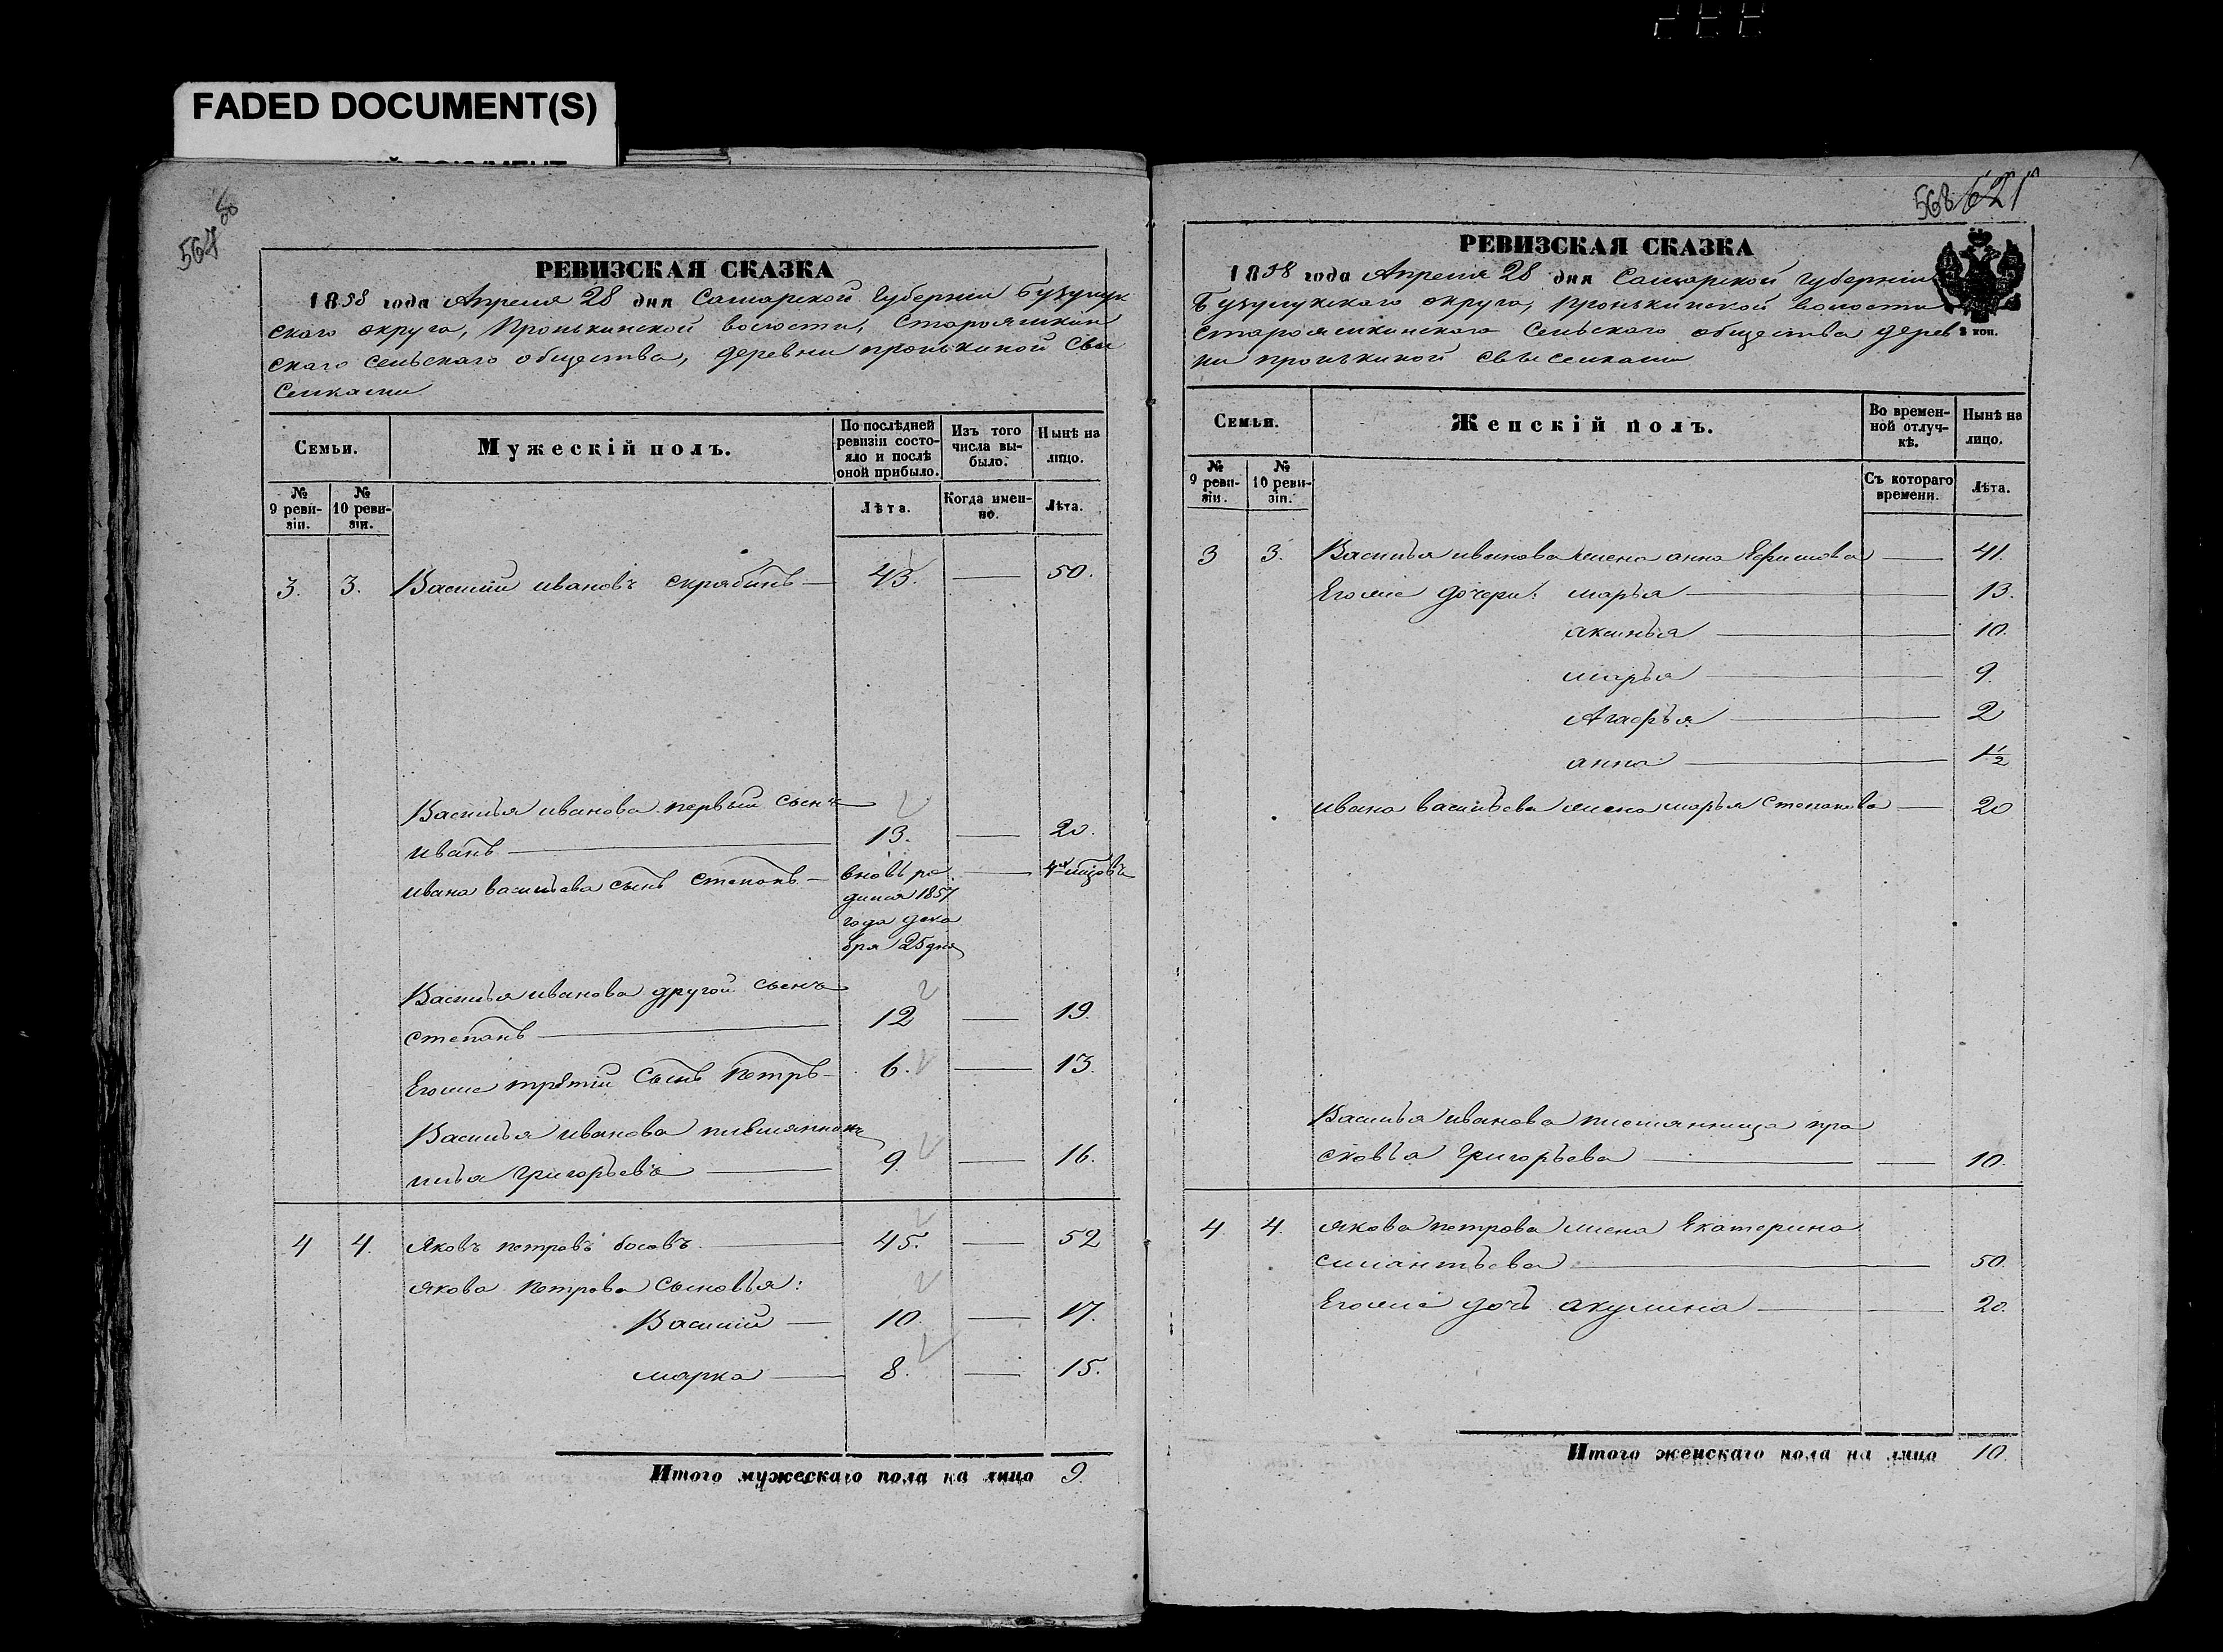 FADED DOCUMENT(S)
567
РЕВИЗСКАЯ СКАЗКА
1858 года Апреля 28 дня Самарской Губернии Бузулук
скаго округа, Пронькинской волости, Старояшкин
скаго сельскаго общества, деревни пронькиной Свы
селками
Семьи.
Мужескій полъ.
По послѣдней ревизіи состо-
яло и послѣ оной прибыло.
Изъ того числа вы-
было.
Нынѣ на лицо.
№ 9 реви-
зіи.
№ 10 реви-
зіи.
Лѣта.
Когда имен-
но.
Лѣта.
3. 3. Василий ивановъ скрябинъ — 43. — 50.
Василья иванова первый сынъ
иванъ — 13. — 20.
ивана васильева сынъ степанъ — вновь ро — 4 мѣсяцовъ
дился 1857
года дека
бря 25 дня
Василья иванова другой сынъ
степанъ — 12 — 19.
Егоже третий сынъ петръ — 6. — 13.
Василья иванова племянникъ
илья григорьевъ — 9. — 16.
4 4. Яковъ петровъ босовъ — 45. — 52
якова петрова сыновья:
Василий — 10. — 17.
марка — 8. — 15.
Итого мужескаго пола на лицо 9.
568 621
РЕВИЗСКАЯ СКАЗКА
1858 года Апреля 28 дня Самарской Губернии
Бузулукскаго округа, Пронькинской волости
старояшкинскаго Сельскаго общества дерев
3 коп.
ни пронькиной свыселками
Семьи.
Женскій полъ.
Во времен-
ной отлуч-
кѣ.
Нынѣ на лицо.
№ 9 реви-
зіи.
№ 10 реви-
зіи.
Съ котораго времени.
Лѣта.
3 3. Василья иванова жена анна Ефимова — 41.
Егоже дочери: марья — 13.
аксинья — 10.
марья — 9.
Агафья — 2
анна — 1½
ивана васильева жена марья степанова — 20
Василья иванова племянница пра
сковья Григорьева — 10.
4. 4. якова петрова жена Екатерина
силантьева — 50.
Егоже дочь акулина — 20.
Итого женскаго пола на лицо 10.